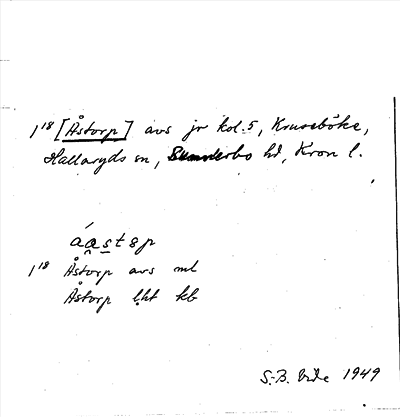 1¹⁸ [Åstorp] avs jr kol. 5, Kruseböke,
Hallaryds sn, Sunnerbo hd, Kron l.
áastεp
1¹⁸ Åstorp avs ml
Åstorp lht kb
S.-B. Vide 1949